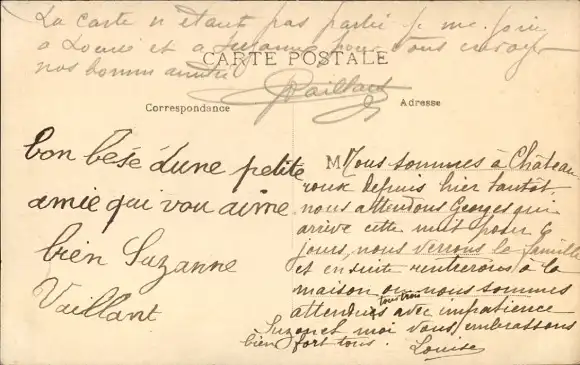 La carte n'étant pas partie je me joins
a Louise et a Suzanne pour vous envoyer
nos bonnes amitiés
CARTE POSTALE
Vaillant
Correspondance
Adresse
bon bésé d'une petite
amie qui vou aime
bien Suzanne
Vaillant
M
Nous sommes à Château
roux depuis hier tantôt,
nous attendons Georges qui
arrive cette nuit pour 6
jours, nous verrons la famille
et ensuite rentrerons à la
maison ou nous sommes
attendus tous trois avec impatience
Suzon et moi vous embrassons
bien fort tous. Louise